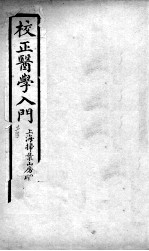 校正醫學入門
上海掃葉山房印